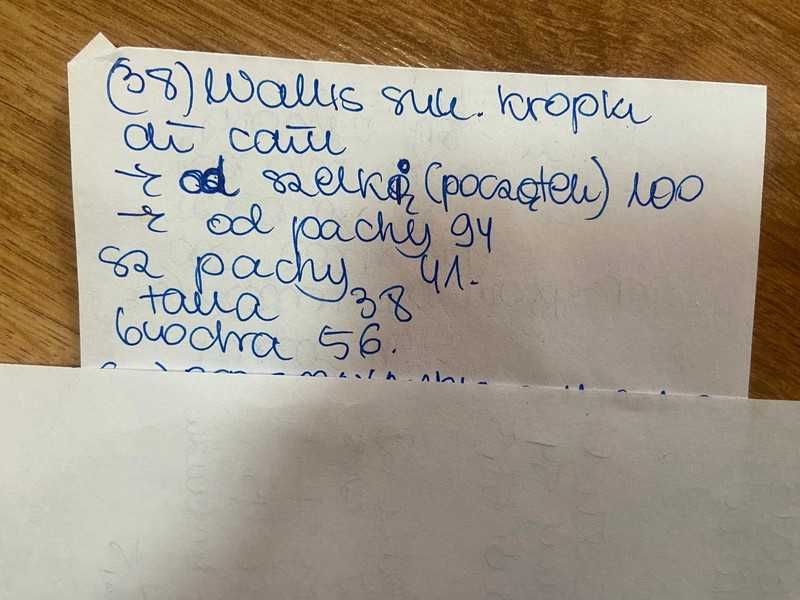 (38) Wallis suk. kropki
dł całk
→ od szelki (początek) 100
→ od pachy 94
sz pachy 41.
talia 38
biodra 56.